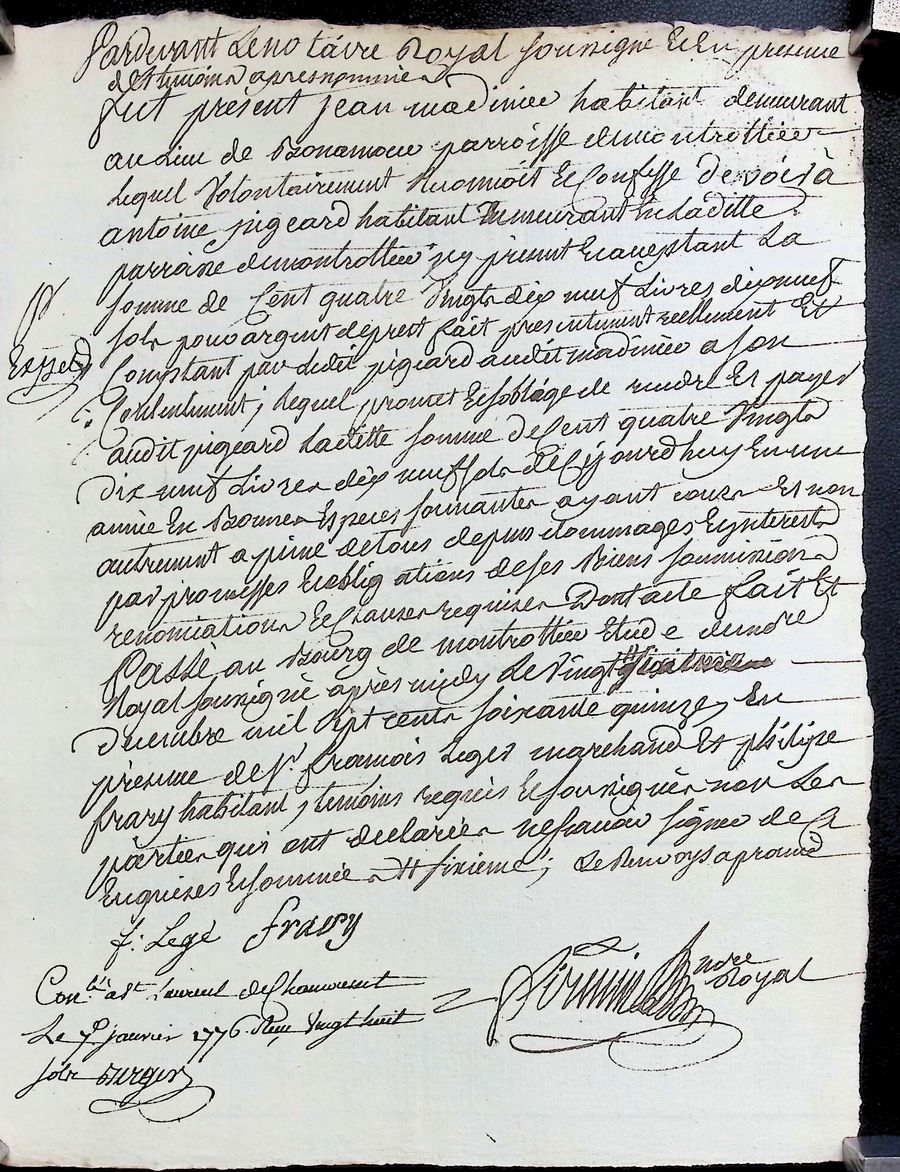 Pardevant Le notaire Royal soussigné et en presence
des temoins apres nommés
fut present jean madinier habitant demeurant
au Lieu de parroisse de montrottier
Lequel Volontairement Reconnoit et Confesse devoir à
antoine pigeard habitant demeurant en Laditte
parroisse de montrottier icy present et acceptant La
somme de Cent quatre Vingts dix neuf Livres dix neuf
sols pour argent de prest fait presentement reellement et
Comptant par Ledit pigeard audit madinier a son
Contentement; Lequel promet et s'oblige de rendre et payer
audit pigeard Laditte somme de Cent quatre Vingts
dix neuf Livres dix neuf sols de Cejourdhuy en une
année en Bonnes Especes sonnantes ayant cours et non
autrement a peine de tous depens dommages et interests
par promesses et obligations de ses Biens soumissions
renonciations et Clauses requises Dont acte fait et
Passé au Bourg de montrottier Etude du no.re
Royal soussigné après midy Le Vingt
decembre mil sept cents soixante quinze, en
présence de S.r francois Leger marchand et philipe
frary habitant, temoins requis et soussignés non Les
parties qui ont declarées ne scavoir signer de ce
enquises et sommées sixieme; Le Renvoy approuvé
Exped
f: Legé frary
no.re Royal
Con.lé à S.t Laurent de Chamousset
Le 7.e janvier 1776. Reçu Vingt huit
sols Berger